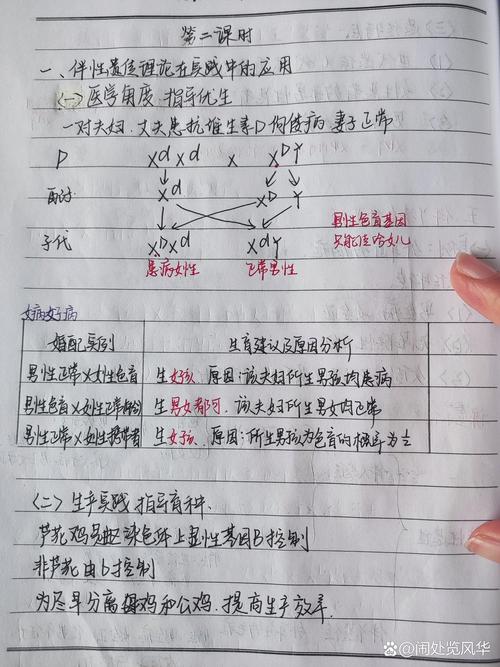 第二课时
一、伴性遗传理论在实践中的应用
(一)医学角度,指导优生
一对夫妇,丈夫患抗维生素D佝偻病 妻子正常
P XdXd × XDY
配子 Xd XD Y
子代 XDXd XdY
患病女性 正常男性
男性色盲基因
只能传给女儿
婚配实例 生育建议及原因分析
男性正常×女性色盲 生女孩,原因:该夫妇所生男孩均患病
男性色盲×女性正常 生男女都可,该夫妇所生男女均正常
男性正常×女性携带者 生女孩,原因:所生男孩为色盲的概率为
(二)生产实践,指导育种.
芦花鸡是 染色体上显性基因B控制
非芦花由b控制
为尽早分离母鸡和公鸡,提高生产效率.
@闹处览风华